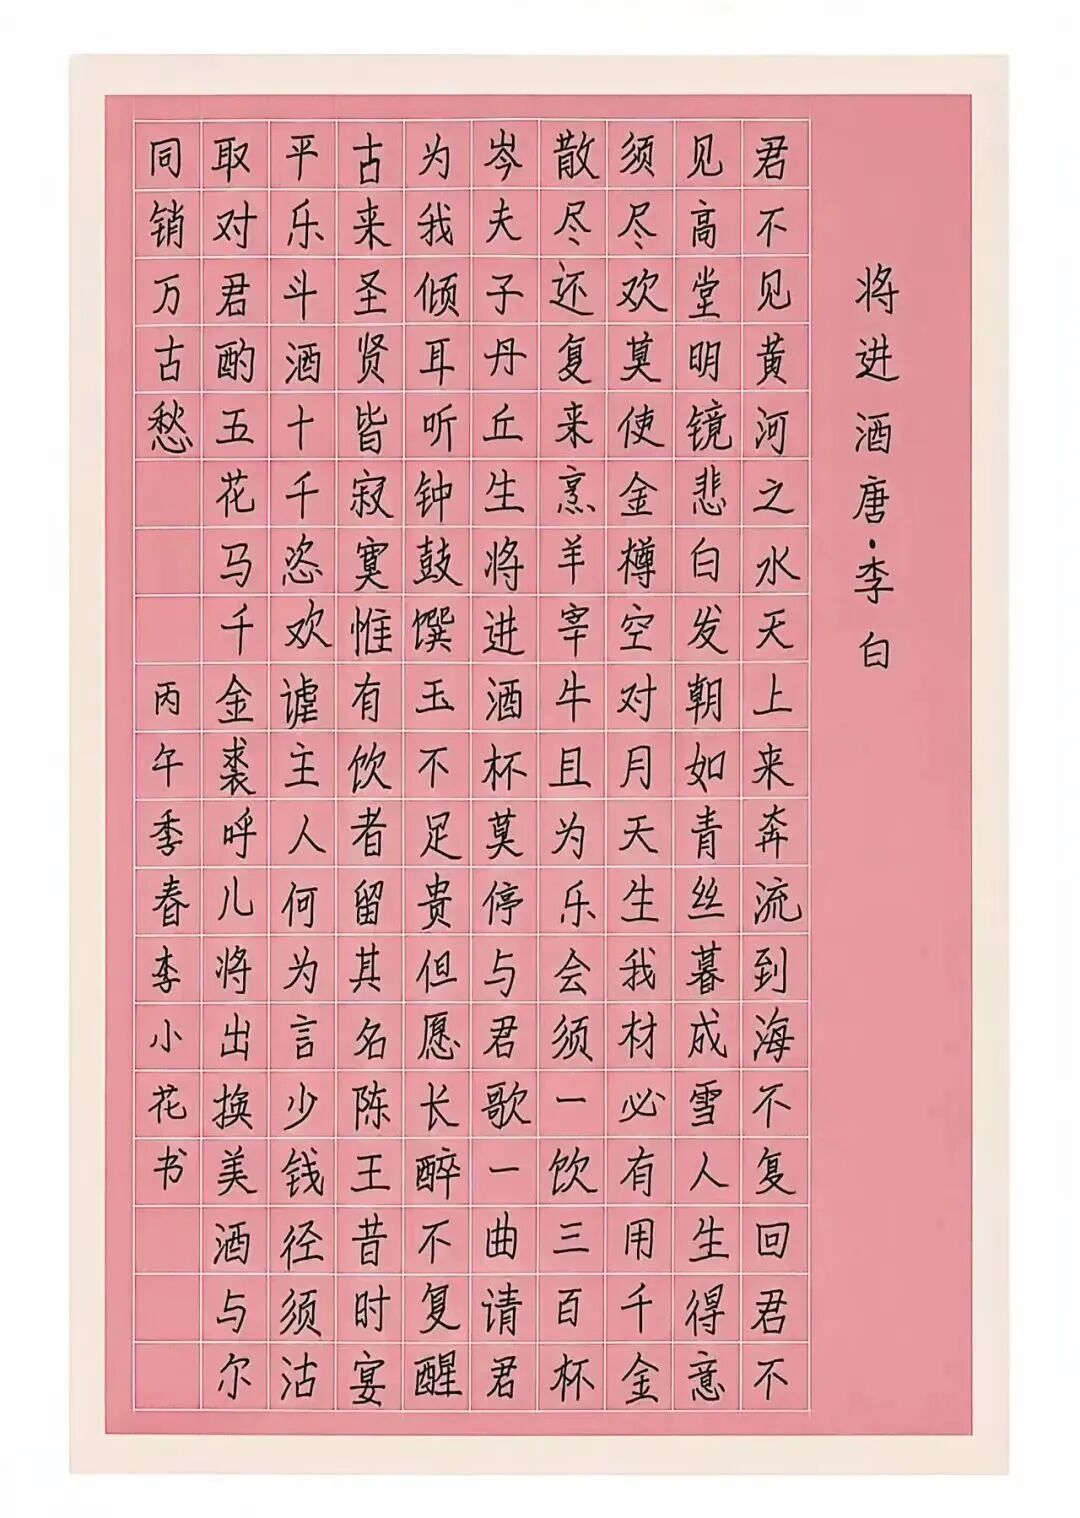 将进酒唐·李白
君不见黄河之水天上来奔流到海不复回君不
见高堂明镜悲白发朝如青丝暮成雪人生得意
须尽欢莫使金樽空对月天生我材必有用千金
散尽还复来烹羊宰牛且为乐会须一饮三百杯
岑夫子丹丘生将进酒杯莫停与君歌一曲请君
为我倾耳听钟鼓馔玉不足贵但愿长醉不复醒
古来圣贤皆寂寞惟有饮者留其名陈王昔时宴
平乐斗酒十千恣欢谑主人何为言少钱径须沽
取对君酌五花马千金裘呼儿将出换美酒与尔
同销万古愁 丙午季春李小花书